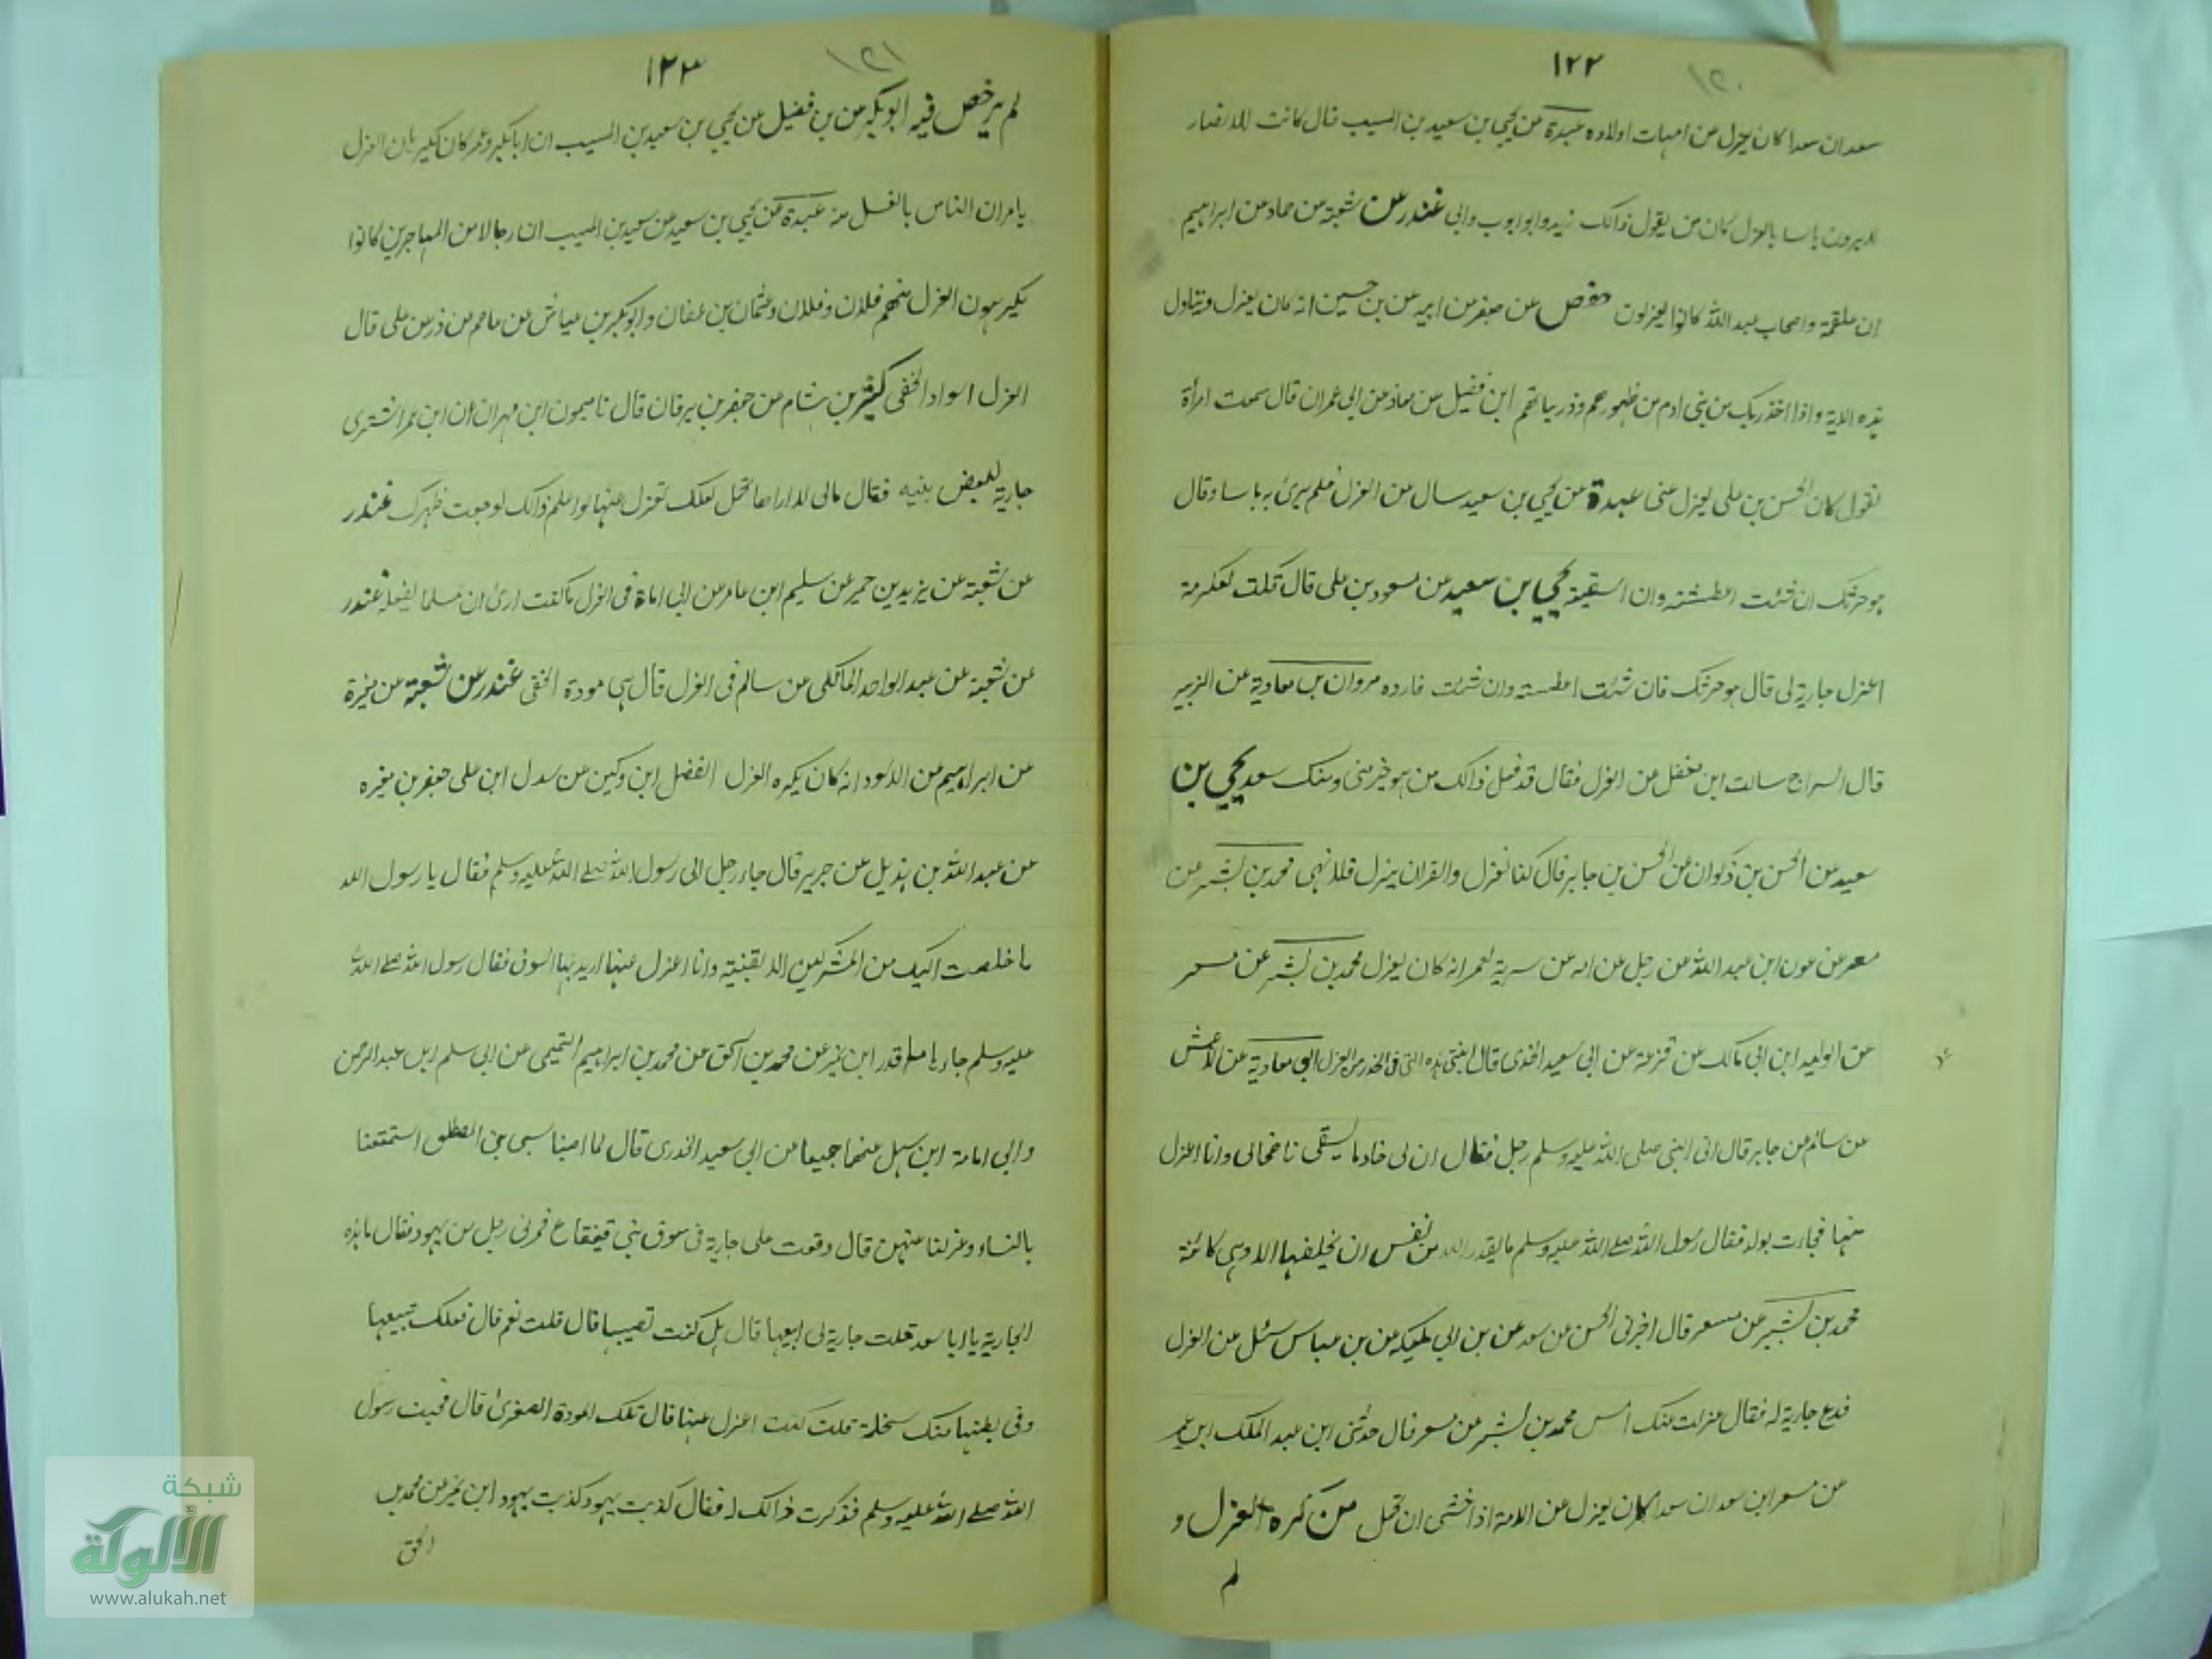 ١٢٢
١٢٠
سعد ان سعدا كان يعزل عن امهات اولاده عبدة عن يحيي بن سعيد بن المسيب قال كانت الانصار
لا يرون باسا بالعزل كان من يقول ذالك زيد وابو ايوب وابي غندر عن شعبة عن حماد عن ابراهيم
ان علقمة واصحاب عبد الله كانوا يعزلون حفص عن جعفر عن ابيه عن بن حسين انه كان يعزل ويتاول
هذه الاية واذا اخذ ربك من بني ادم من ظهورهم وذرياتهم ابن فضيل عن معاذ عن ابي عمران قال سمعت امرأة
تقول كان الحسن بن علي يعزل عني عبدة عن يحيي بن سعيد سال عن العزل فلم يرى به باسا وقال
هو حرثك ان شئت اعطشته وان اسقيته يحيي بن سعيد عن مسعود بن علي قال قلت لعكرمة
اعزل جارية لي قال هو حرثك فان شئت اعطسته وان شئت فارده مروان بن معاوية عن الزبير
قال السراج سالت ابن مغفل عن العزل فقال قد فعل ذالك من هو خير مني ومنك سعد يحيي بن
سعيد عن الحسن بن ذكوان عن الحسن بن جابر قال كنا نعزل والقران ينزل فلا نهي محمد بن بشر عن
معمر عن عون ابن عبد الله عن رجل عن امه عن سرية لعمر انه كان يعزل محمد بن بشر عن مسعر
عن الوليد ابن ابي مالك عن قزعة عن ابي سعيد الخدي قال ابنتي هذه التي في الخدر من العزل ابي معاوية عن الاعمش
عن سالم عن جابر قال اتى النبي صلى الله عليه وسلم رجل فقال ان لي خادما يسقي ناضحالي وانا اعزل
عنها فجاءت بولد فقال رسول الله صلے الله عليه وسلم ما يقدر الله من نفس ان يخلقها الا وهي كائنة
محمد بن بشر عن مسعر قال اخبرني الحسن عن سعد عن بن ابي مليكه عن بن عباس سئل عن العزل
فدع جارية له فقال عزلت عنك امس محمد بن بشر عن مسعر قال حدثني ابن عبد الملك ابن عمر
عن مسعر ابن سعد ان سعدا كان يعزل عن الامة اذا خشي ان تحمل من كره العزل و
لم
١٢٣
١٢١
لم يرخص فيه ابو بكير عن بن فضيل عن يحيي بن سعيد بن المسيب ان ابا بكر وعمر كان يكيرهان العزل
يامران الناس بالغسل منه عبدة عن يحيي بن سعيد عن سعيد بن المسيب ان رجالا من المهاجرين كانوا
يكيرهون العزل منهم فلان وفلان وعثمان بن عفان وابوبكر بن عياش عن عاصم عن ذر عن علي قال
العزل اسواد الخفي كثير بن شام عن جعفر بن برقان قال نا ميمون ابن مهران ان ابن عمر اشترى
جارية لبعض بنيه فقال مالي لا اراها تحمل لعلك تعزل عنها لو اعلم ذالك لوجعت ظهرك غندر
عن شعبة عن يزيد بن حمير عن سليم ابن عامر عن ابي امامة في العزل ما كنت ارى ان مسلما يفعله غندر
عن شعبة عن عبد الواحد المالكي عن سالم في العزل قال هي مودة الخفي غندر عن شعبة عن مغيرة
عن ابراهيم عن الاسود انه كان يكره العزل الفضل ابن دكين عن سدل ابن علي جعفر بن مغيره
عن عبد الله بن هذيل عن جرير قال جاء رجل الى رسول الله صلے الله عليه وسلم فقال يا رسول الله
ما خلصت اليك من المشركين الا بقينته وانا اعزل عنها اريد بها السوق فقال رسول الله صلے الله
عليه وسلم جاءها ما قدر ابن نمير عن محمد بن اسحق عن محمد بن ابراهيم التميمي عن ابي سلم ابن عبد الرحمن
وابي امامة ابن سهل عنهما جميعا عن ابي سعيد الخدري قال لما اصبنا سبي بني المصطلق استمتعنا
بالنساء وعزلنا عنهن قال وقعت على جارية في سوق بني قينقاع فمرني رجل من يهود فقال ما هذه
الجارية يا ابا سعد قلت جارية لي ابيعها قال هل كنت تصيبها قال قلت نعم قال فلعلك تبيعها
وفي بطنها منك سخلة قلت كنت اعزل عنها قال تلك المودة الصغرى قال فجئت رسول
الله صلے الله عليه وسلم فذكرت ذالك له فقال كذبت يهود كذبت يهود ابن نمير عن محمد بن
اسحق
شبكة
الألوكة
www.alukah.net